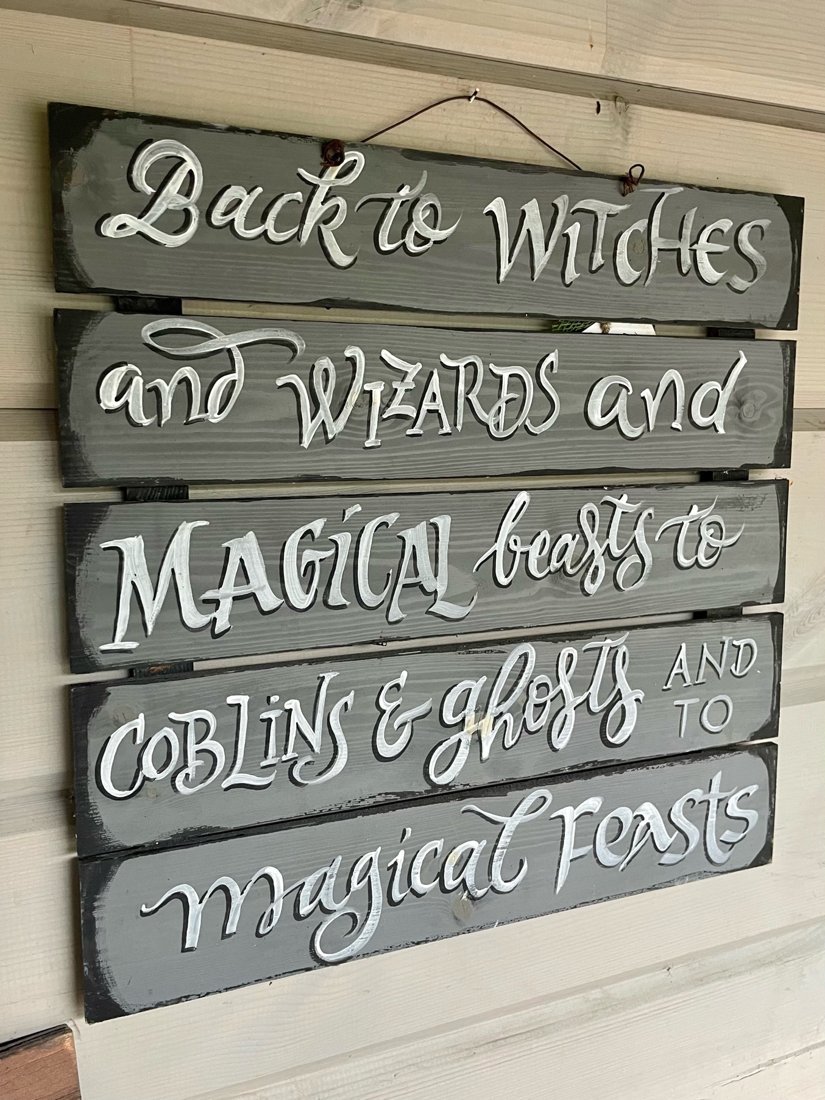 Back to WITCHES
and WIZARDS and
MAGICAL beasts to
GOBLINS & ghosts AND TO
magical Feasts